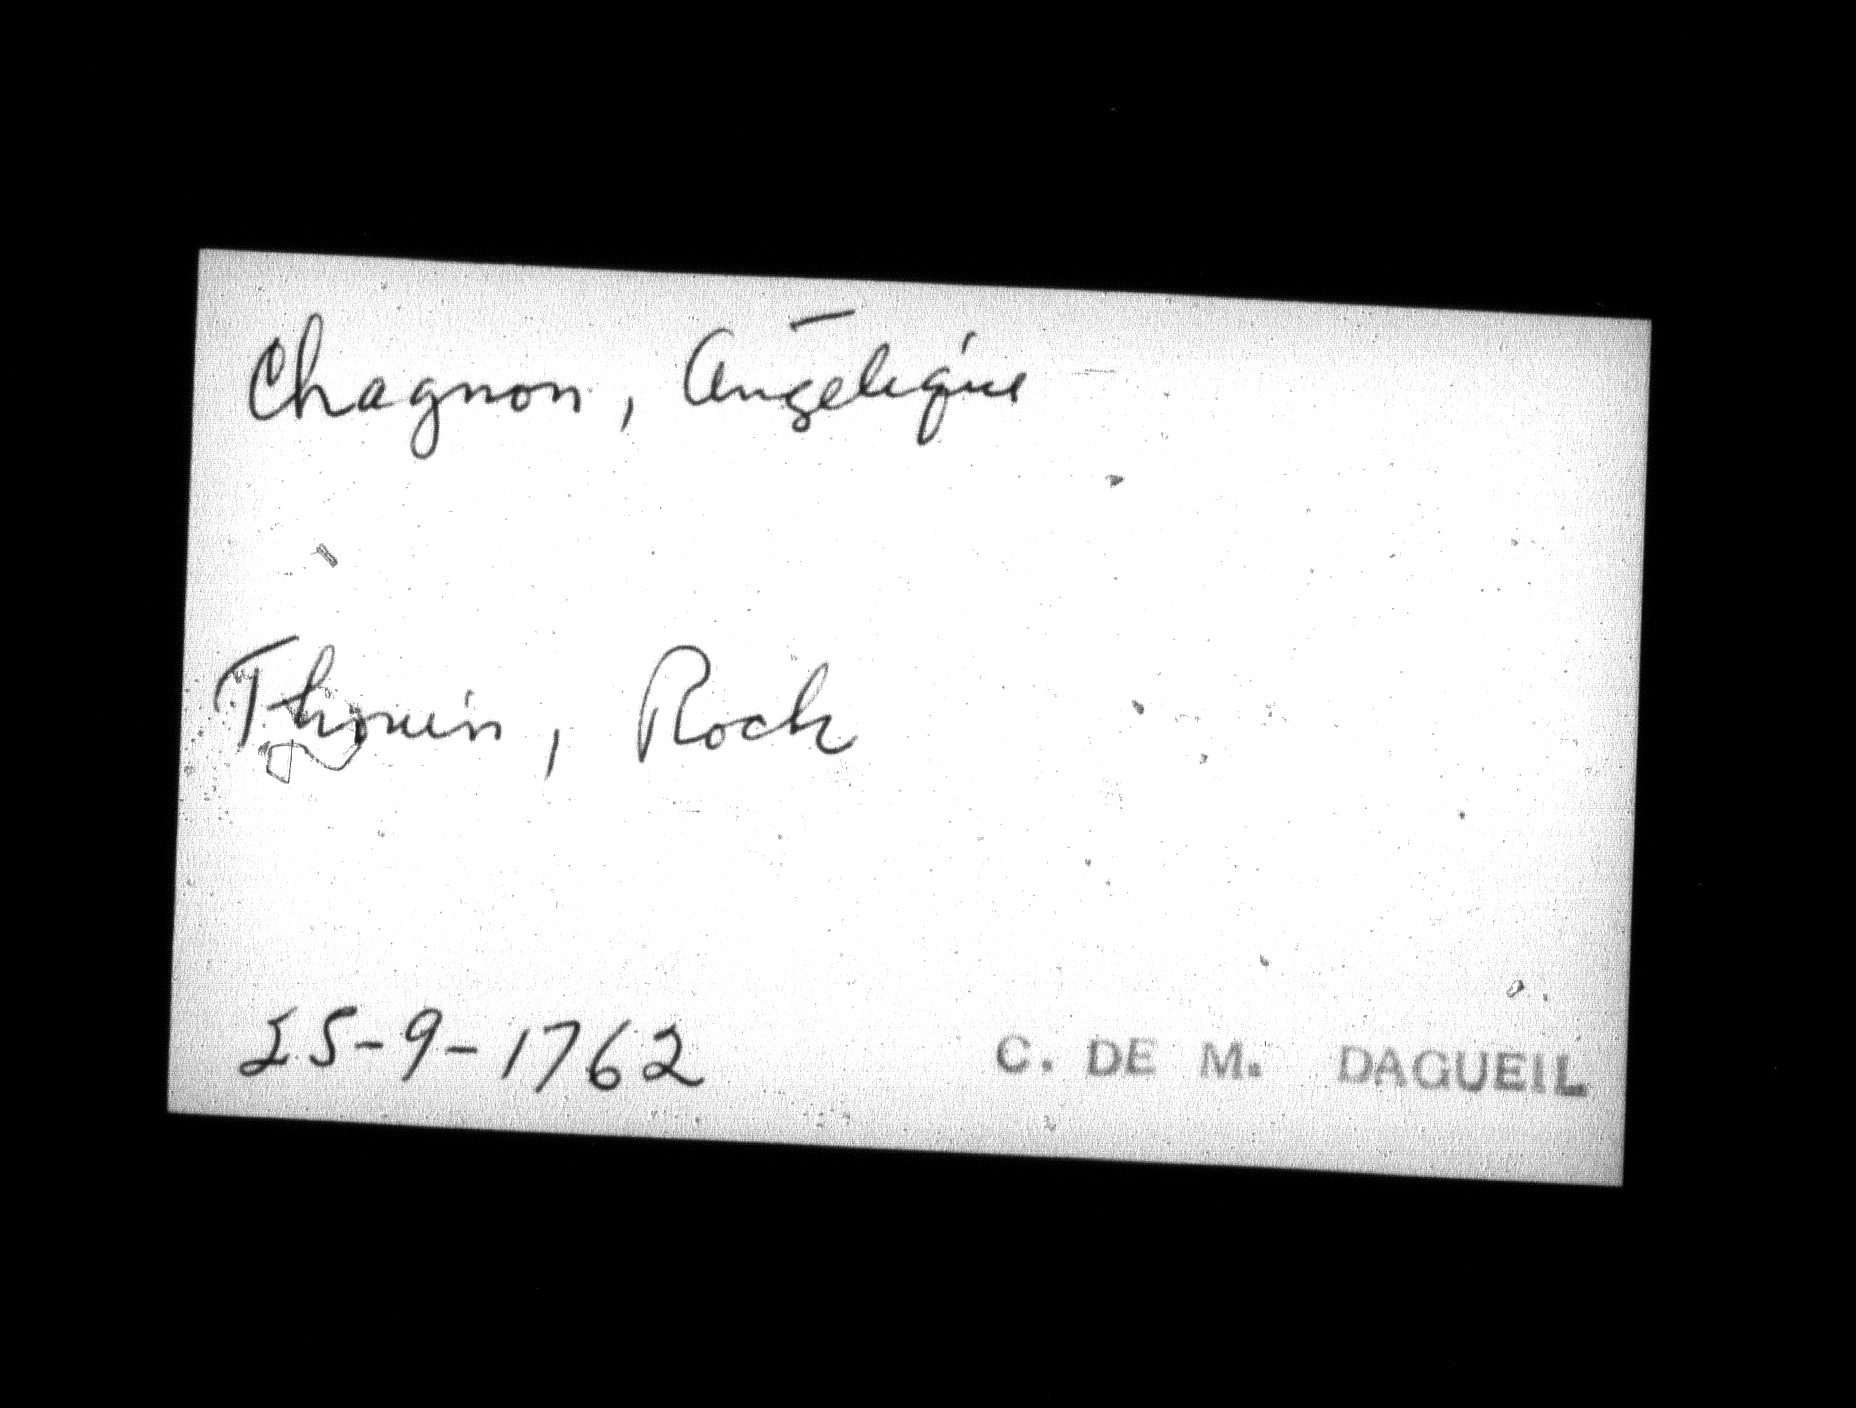 Chagnon, Angélique
Thouin, Rock
25-9-1762 C. DE M. DAGUEIL